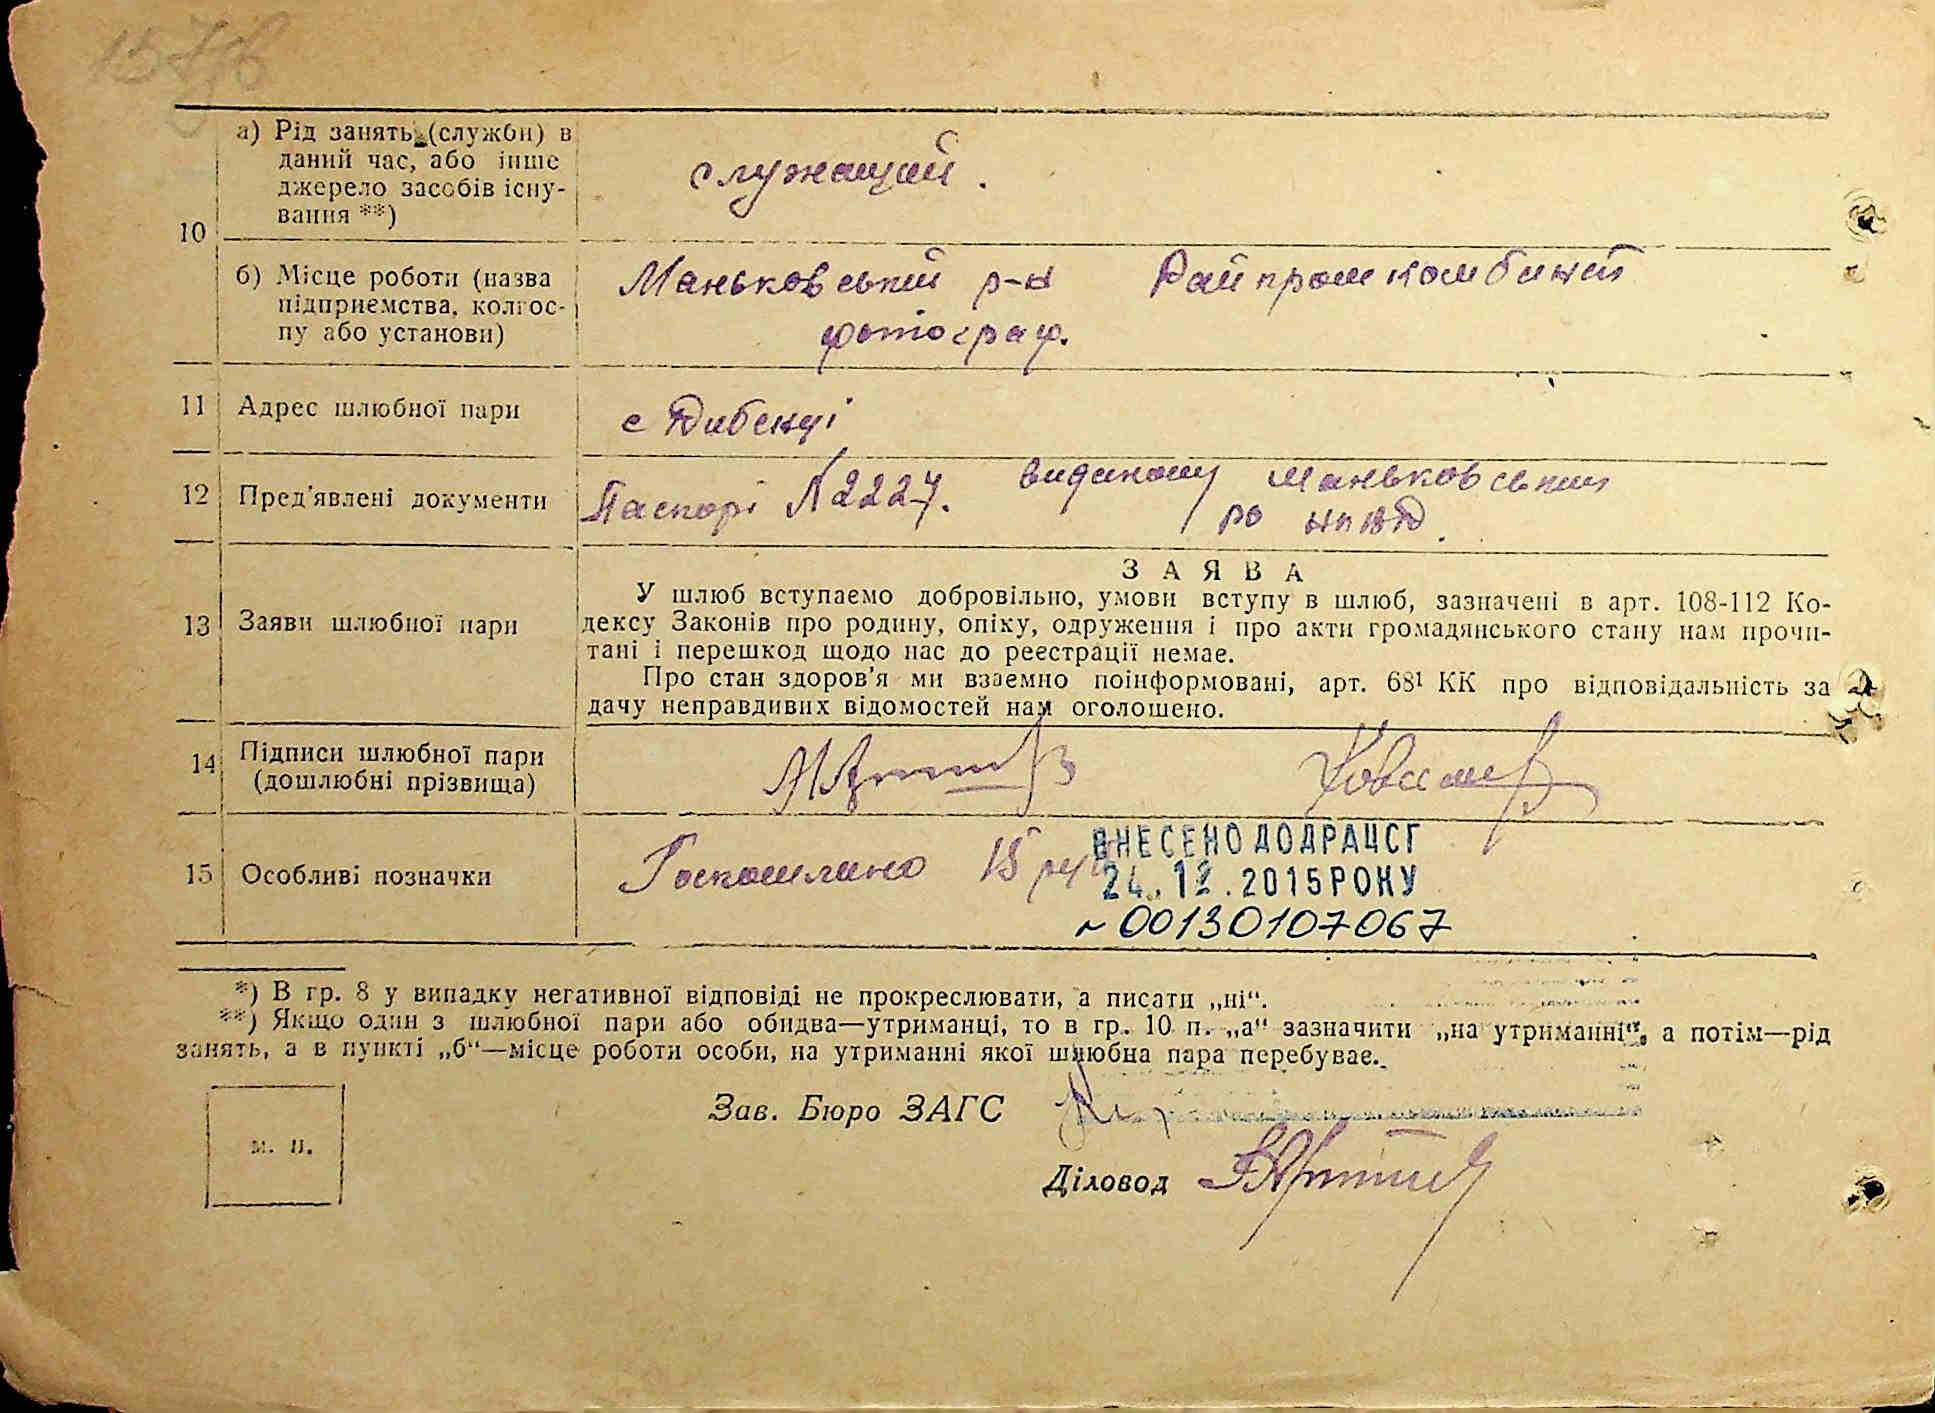 10
а) Рід занять (служби) в
даний час, або інше
джерело засобів існу-
вання **)
служащий.
б) Місце роботи (назва
підприємства, колгос-
пу або установи)
Маньковський р-н Райпромкомбинат
фотограф.
11 Адрес шлюбної пари
с Дибенці
12 Пред'явлені документи
Паспорт № 2227. виданому Маньковським
РО НКВД.
13 Заяви шлюбної пари
ЗАЯВА
У шлюб вступаємо добровільно, умови вступу в шлюб, зазначені в арт. 108-112 Ко-
дексу Законів про родину, опіку, одруження і про акти громадянського стану нам прочи-
тані і перешкод щодо нас до реєстрації немає.
Про стан здоров'я ми взаємно поінформовані, арт. 68¹ КК про відповідальність за
дачу неправдивих відомостей нам оголошено.
14 Підписи шлюбної пари
(дошлюбні прізвища)
15 Особливі позначки
Госпошлина 15 руб
ВНЕСЕНО ДО ДРАЦСГ
24.12.2015 РОКУ
~00130107067
*) В гр. 8 у випадку негативної відповіді не прокреслювати, а писати „ні“.
**) Якщо один з шлюбної пари або обидва—утриманці, то в гр. 10 п. „а“ зазначити „на утриманні“, а потім—рід
занять, а в пункті „б“—місце роботи особи, на утриманні якої шлюбна пара перебуває.
Зав. Бюро ЗАГС
м. п.
Діловод